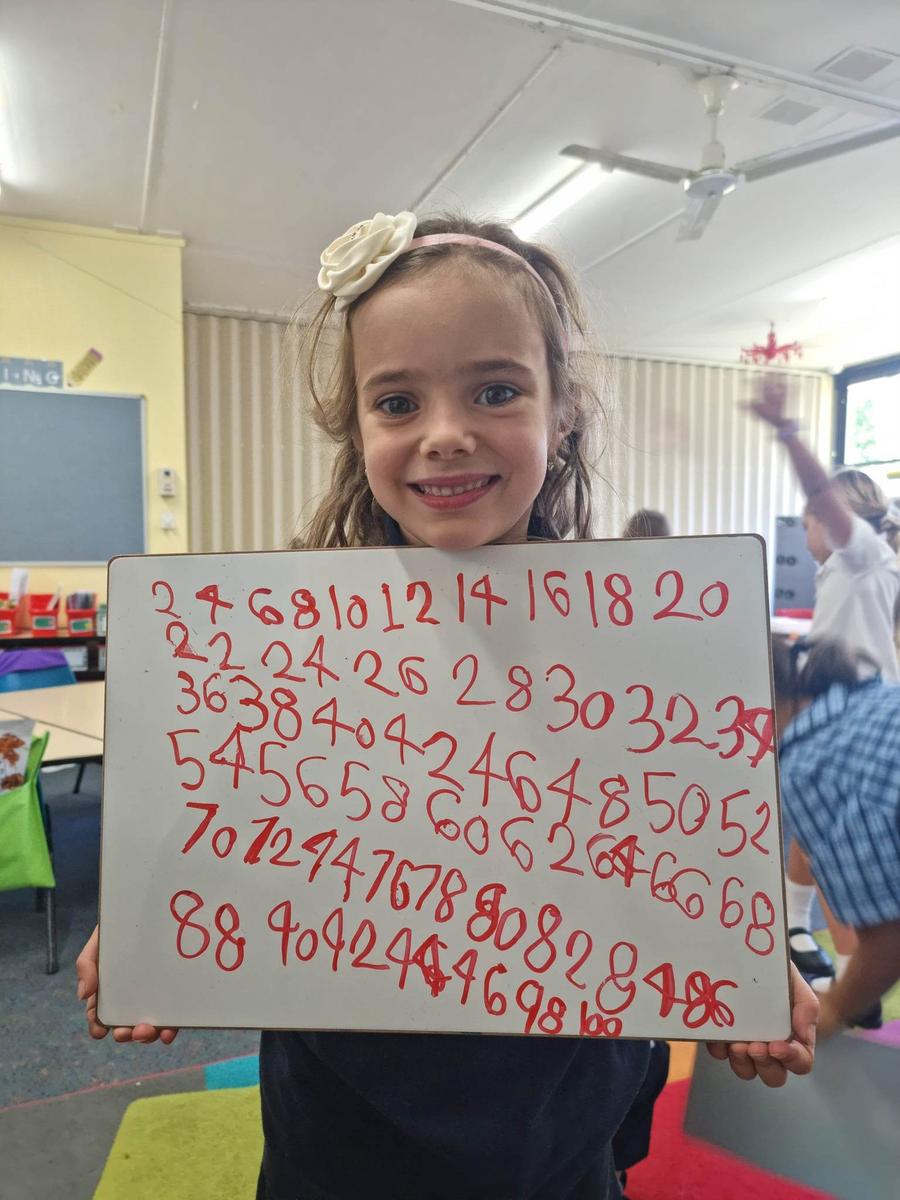 2 4 6 8 10 12 14 16 18 20
22 24 26 28 30 32 34
36 38 40 42 46 48 50 52
54 56 58 60 62 64 66 68
70 72 74 76 78 80 82 84 86
88 90 92 94 96 98 100